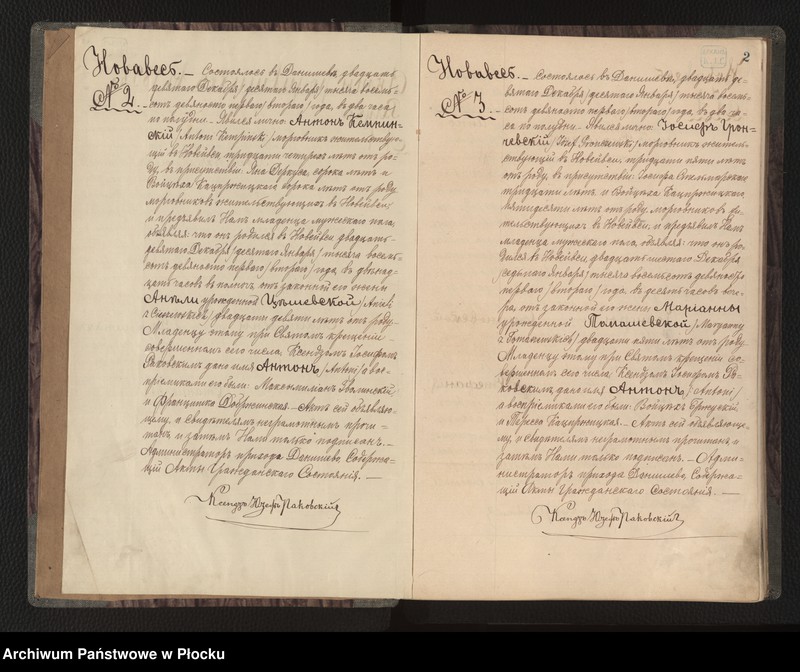 Новавесь. — Состоялось въ Данишевѣ двадцать
№ 2. девятаго Декабря /десятаго Января/ тысяча восемь-
сотъ девяносто перваго /втораго/ года, въ два часа
по полудни. Явился лично Антонъ Кемпин-
скій /Antoni Kempiński/ морговникъ жительствую-
щій въ Новейвси, тридцати четырехъ лѣтъ отъ ро-
ду, въ присутствіи Яна сорока лѣтъ и
Войцѣха сорока лѣтъ отъ роду
морговниковъ жительствующихъ въ Новейвси
и предъявилъ Намъ младенца мужескаго пола
объявляя: что онъ родился въ Новейвси двадцать-
девятаго Декабря /десятаго Января/ тысяча восемь-
сотъ девяносто перваго /втораго/ года, въ двѣнад-
цать часовъ въ полночь, отъ законной его жены
Анѣли урожденной /Anieli
/ двадцати девяти лѣтъ отъ роду.
Младенцу этому при Святомъ крещеніи
совершенномъ сего числа Ксендзомъ Іосифомъ
Раковскимъ дано имя Антонъ /Antoni/ а вос-
пріемниками его были: Максимиліанъ
и Францишка — Актъ сей объявляю-
щему и свидѣтелямъ неграмотнымъ прочи-
танъ и затѣмъ Нами только подписанъ. —
Администраторъ прихода Данишево Содержа-
щій Акты Гражданскаго Состоянія. —
Ксендзъ Юзефъ Раковскій
2
Новавесь. — Состоялось въ Данишевѣ двадцать де-
№ 3. вятаго Декабря /десятаго Января/ тысяча восемь-
сотъ девяносто перваго /втораго/ года, въ два ча-
са по полудни. Явился лично Іосифъ Грон-
чевскій /Józef / морговникъ житель-
ствующій въ Новейвси, тридцати пяти лѣтъ
отъ роду, въ присутствіи: Іосифа
тридцати лѣтъ, и Войцѣха
пятидесяти лѣтъ отъ роду, морговниковъ жи-
тельствующихъ въ Новейвси, и предъявилъ Намъ
младенца мужескаго пола, объявляя: что онъ ро-
дился въ Новейвси двадцать шестаго Декабря
/седьмаго Января/ тысяча восемьсотъ девяносто
перваго /втораго/ года, въ десять часовъ вече-
ра, отъ законной его жены Маріанны
урожденной Томашевской /Maryanny
z Tomaszewskich/ двадцати пяти лѣтъ отъ роду.
Младенцу этому при Святомъ крещеніи со-
вершенномъ сего числа Ксендзомъ Іосифомъ Ра-
ковскимъ дано имя Антонъ /Antoni/
а воспріемниками его были: Войцѣхъ
и — Актъ сей объявляюще-
му и свидѣтелямъ неграмотнымъ прочитанъ и
затѣмъ Нами только подписанъ. — Адми-
нистраторъ прихода Данишево Содержа-
щій Акты Гражданскаго Состоянія. —
Ксендзъ Юзефъ Раковскій
Archiwum Państwowe w Płocku